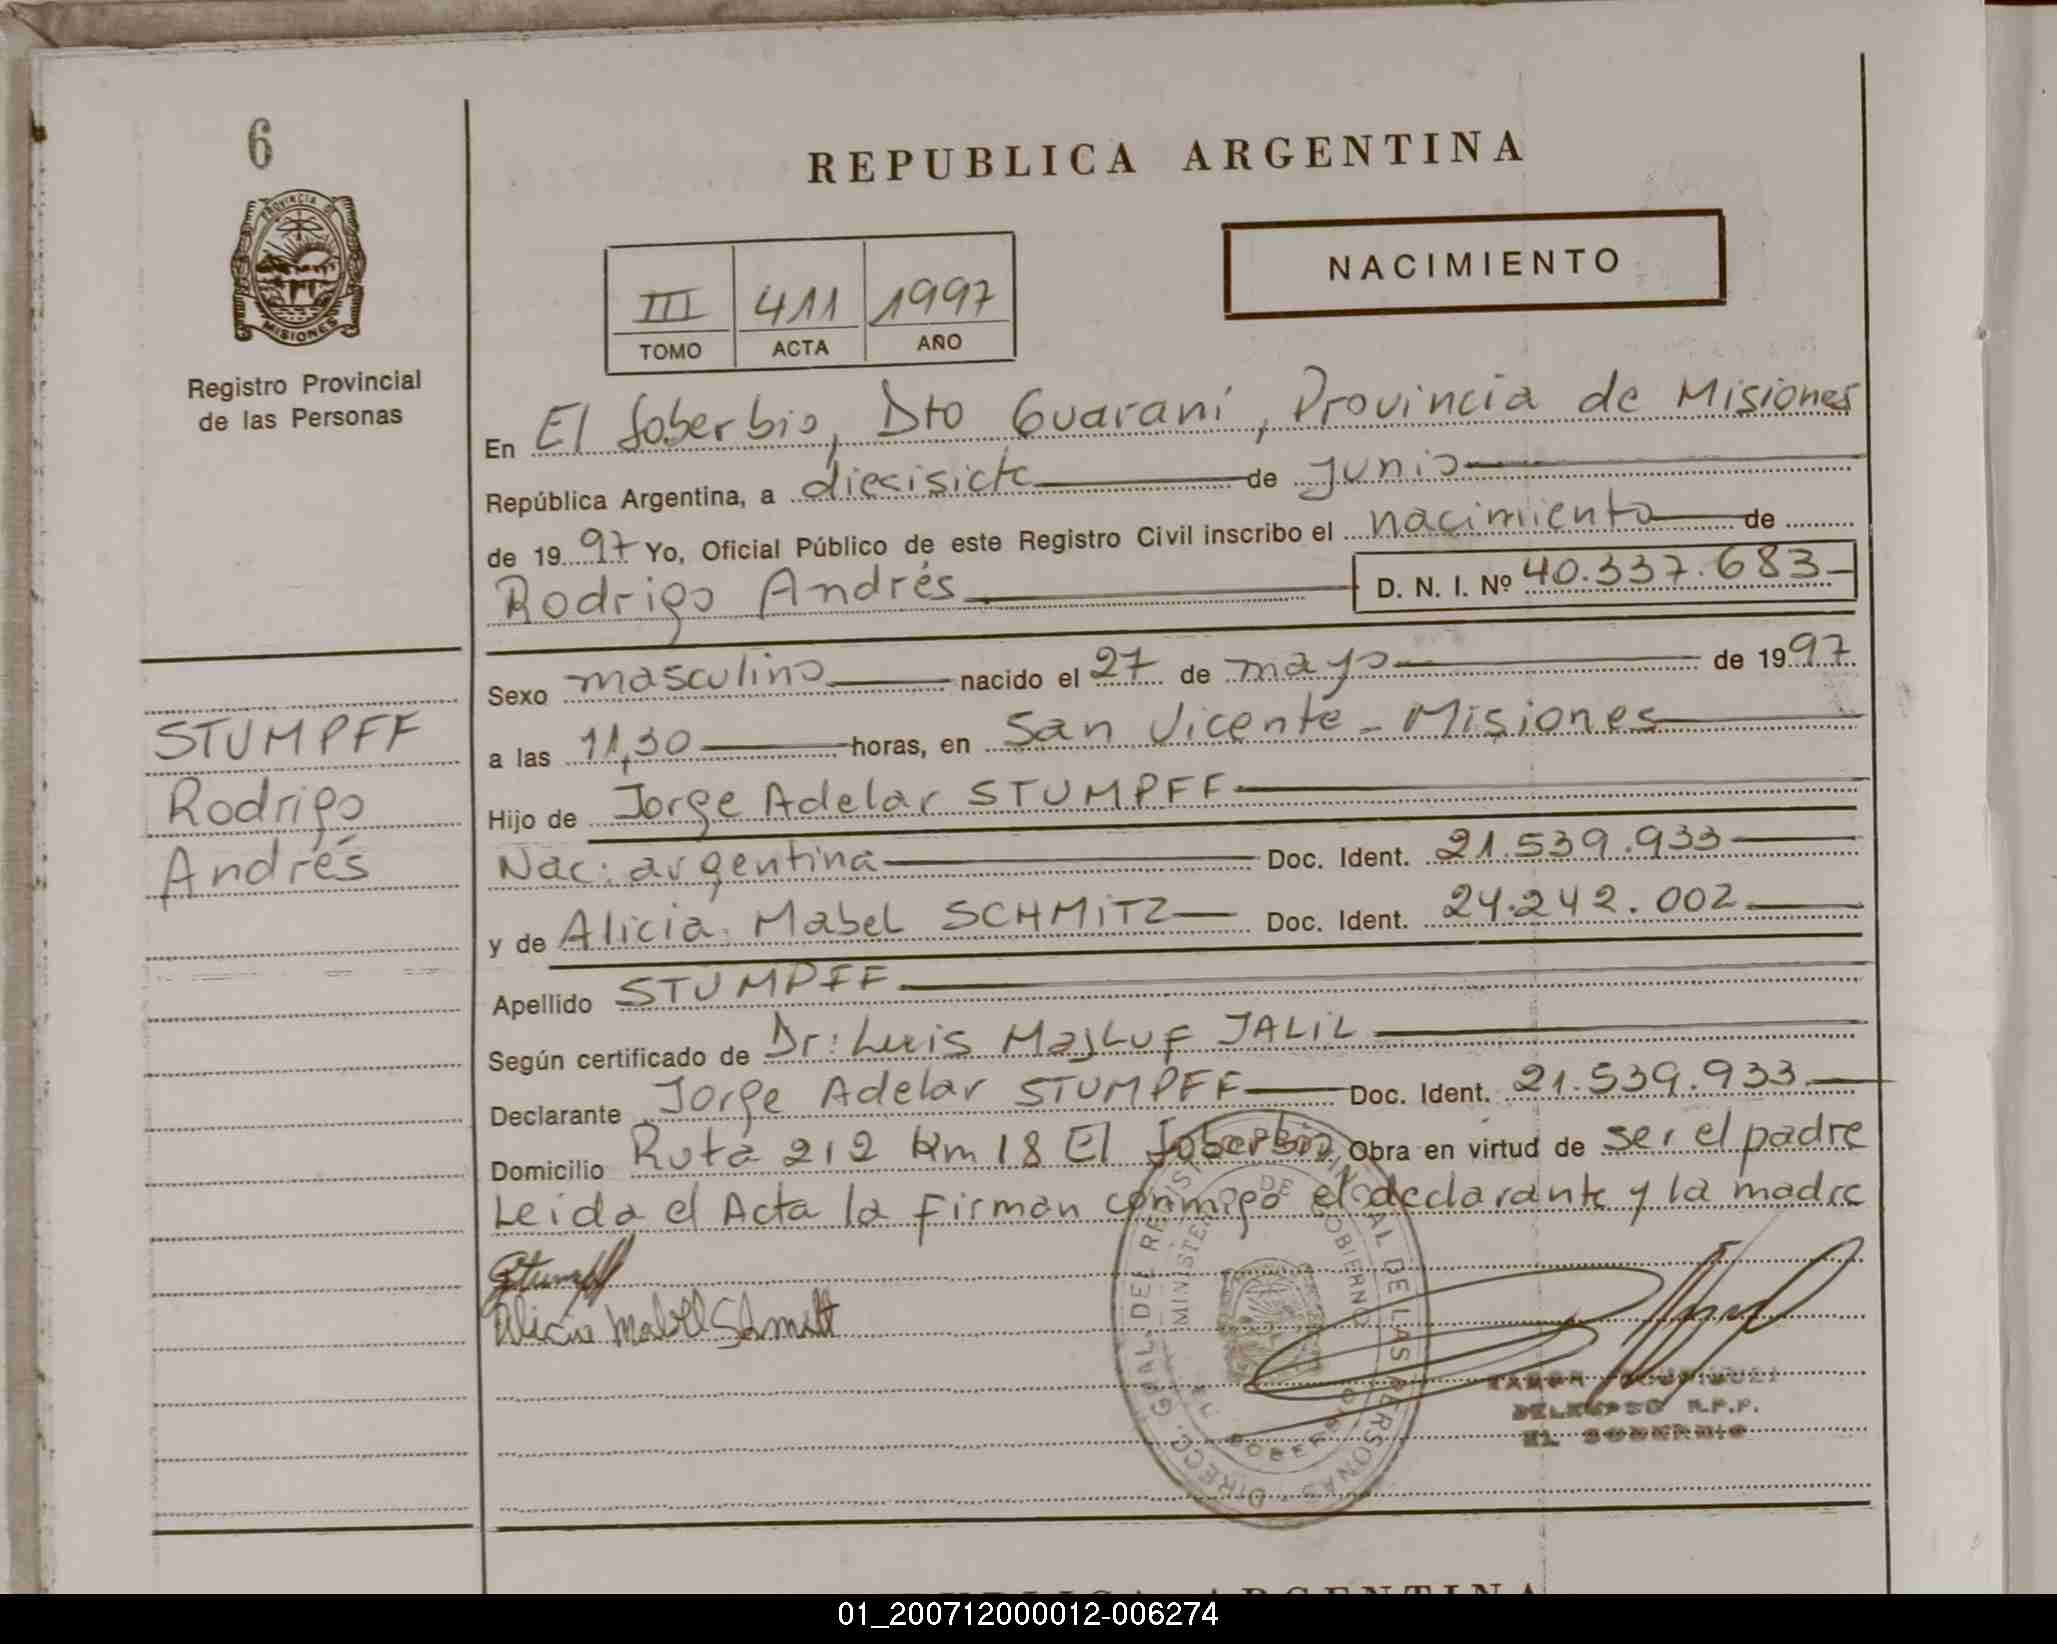 6
PROVINCIA DE
MISIONES
Registro Provincial
de las Personas
REPUBLICA ARGENTINA
NACIMIENTO
III 411 1997
TOMO ACTA AÑO
En El Soberbio, Dto Guaraní, Provincia de Misiones
República Argentina, a diecisiete de junio
de 1997 Yo, Oficial Público de este Registro Civil inscribo el nacimiento de
Rodrigo Andrés D. N. I. Nº 40.337.683
Sexo masculino nacido el 27 de mayo de 1997
a las 11,30 horas, en San Vicente - Misiones
Hijo de Jorge Adelar STUMPFF
Nac: argentina Doc. Ident. 21.539.933
y de Alicia Mabel SCHMiTZ Doc. Ident. 24.242.002
Apellido STUMPFF
Según certificado de Dr: Luis MajLuf JALiL
Declarante Jorge Adelar STUMPFF Doc. Ident. 21.539.933
Domicilio Ruta 212 km 18 El Soberbio Obra en virtud de ser el padre
Leida el Acta la firman conmigo el declarante y la madre
STUMPFF
Rodrigo
Andrés
Alicia Mabel
DIRECC. GRAL. DEL REGISTRO PROVINCIAL DE LAS PERSONAS
MINISTERIO DE GOBIERNO
EL SOBERBIO
DELEGADO R.P.P.
EL SOBERBIO
ARGENTINA
01_200712000012-006274